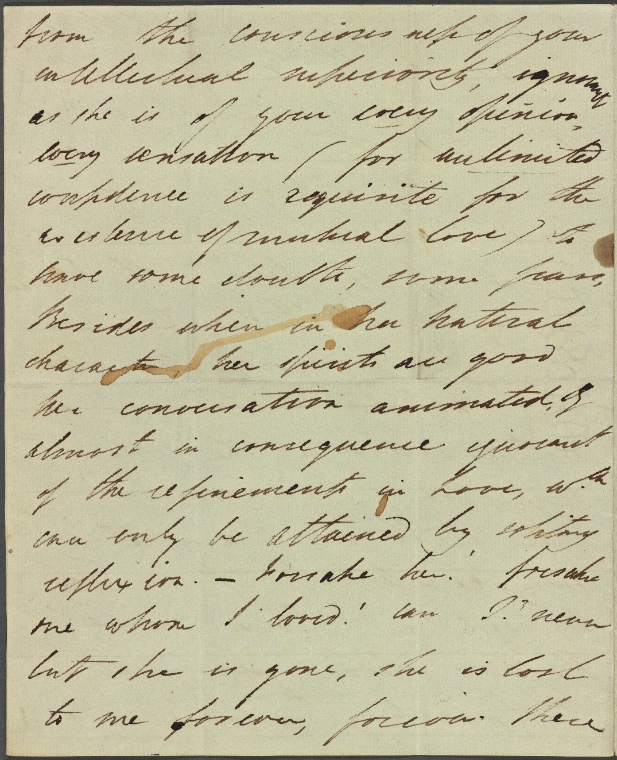 from the consciousness of your
intellectual superiority, ignorant
as she is of your every opinion,
every sensation (for unlimited
confidence is requisite for the
existence of mutual love) to
have some doubts, some fears,
Besides when in her natural
character her spirits are good
her conversation animated, &
almost in consequence ignorant
of the refinements in Love, wch
can only be attained by solitary
reflexion. — Forsake her! forsake
one whom I loved! can I? never
but she is gone, she is lost
to me forever, forever. There